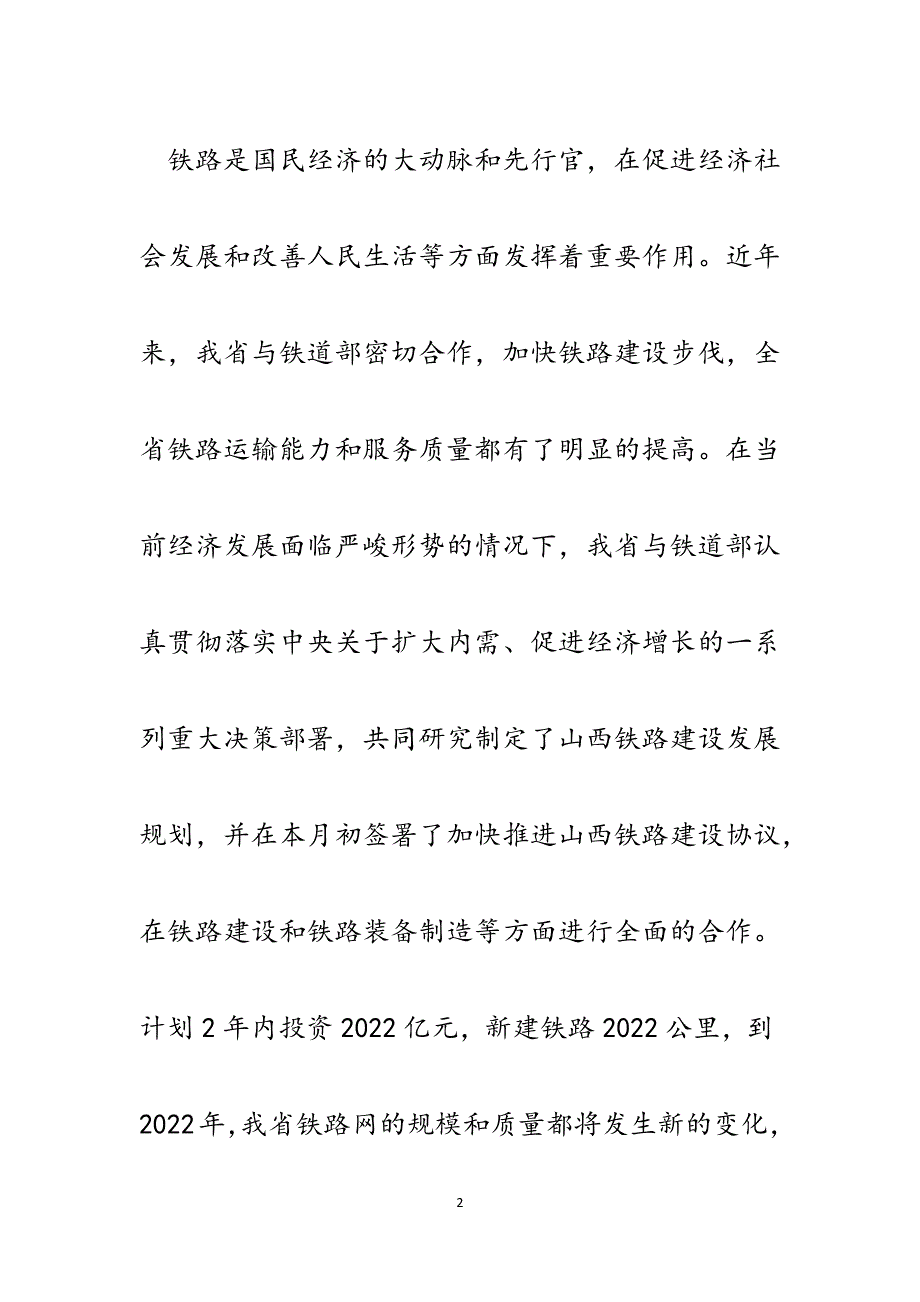 铁路是国民经济的大动脉和先行官，在促进经济社
会发展和改善人民生活等方面发挥着重要作用。近年
来，我省与铁道部密切合作，加快铁路建设步伐，全
省铁路运输能力和服务质量都有了明显的提高。在当
前经济发展面临严峻形势的情况下，我省与铁道部认
真贯彻落实中央关于扩大内需、促进经济增长的一系
列重大决策部署，共同研究制定了山西铁路建设发展
规划，并在本月初签署了加快推进山西铁路建设协议，
在铁路建设和铁路装备制造等方面进行全面的合作。
计划2年内投资2022亿元，新建铁路2022公里，到
2022年，我省铁路网的规模和质量都将发生新的变化，
2